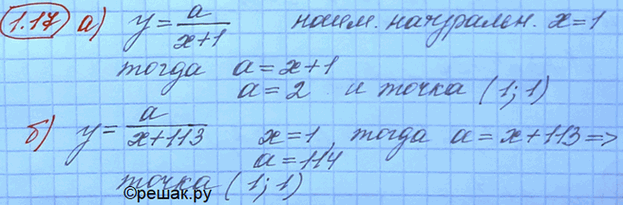 1.17 а) y = a/(x+1) наим. натуральн. x=1
тогда a=x+1
a=2 и точка (1;1)
б) y = a/(x+113) x=1, тогда a=x+113 =>
a=114
точка (1;1)
©решак.ру